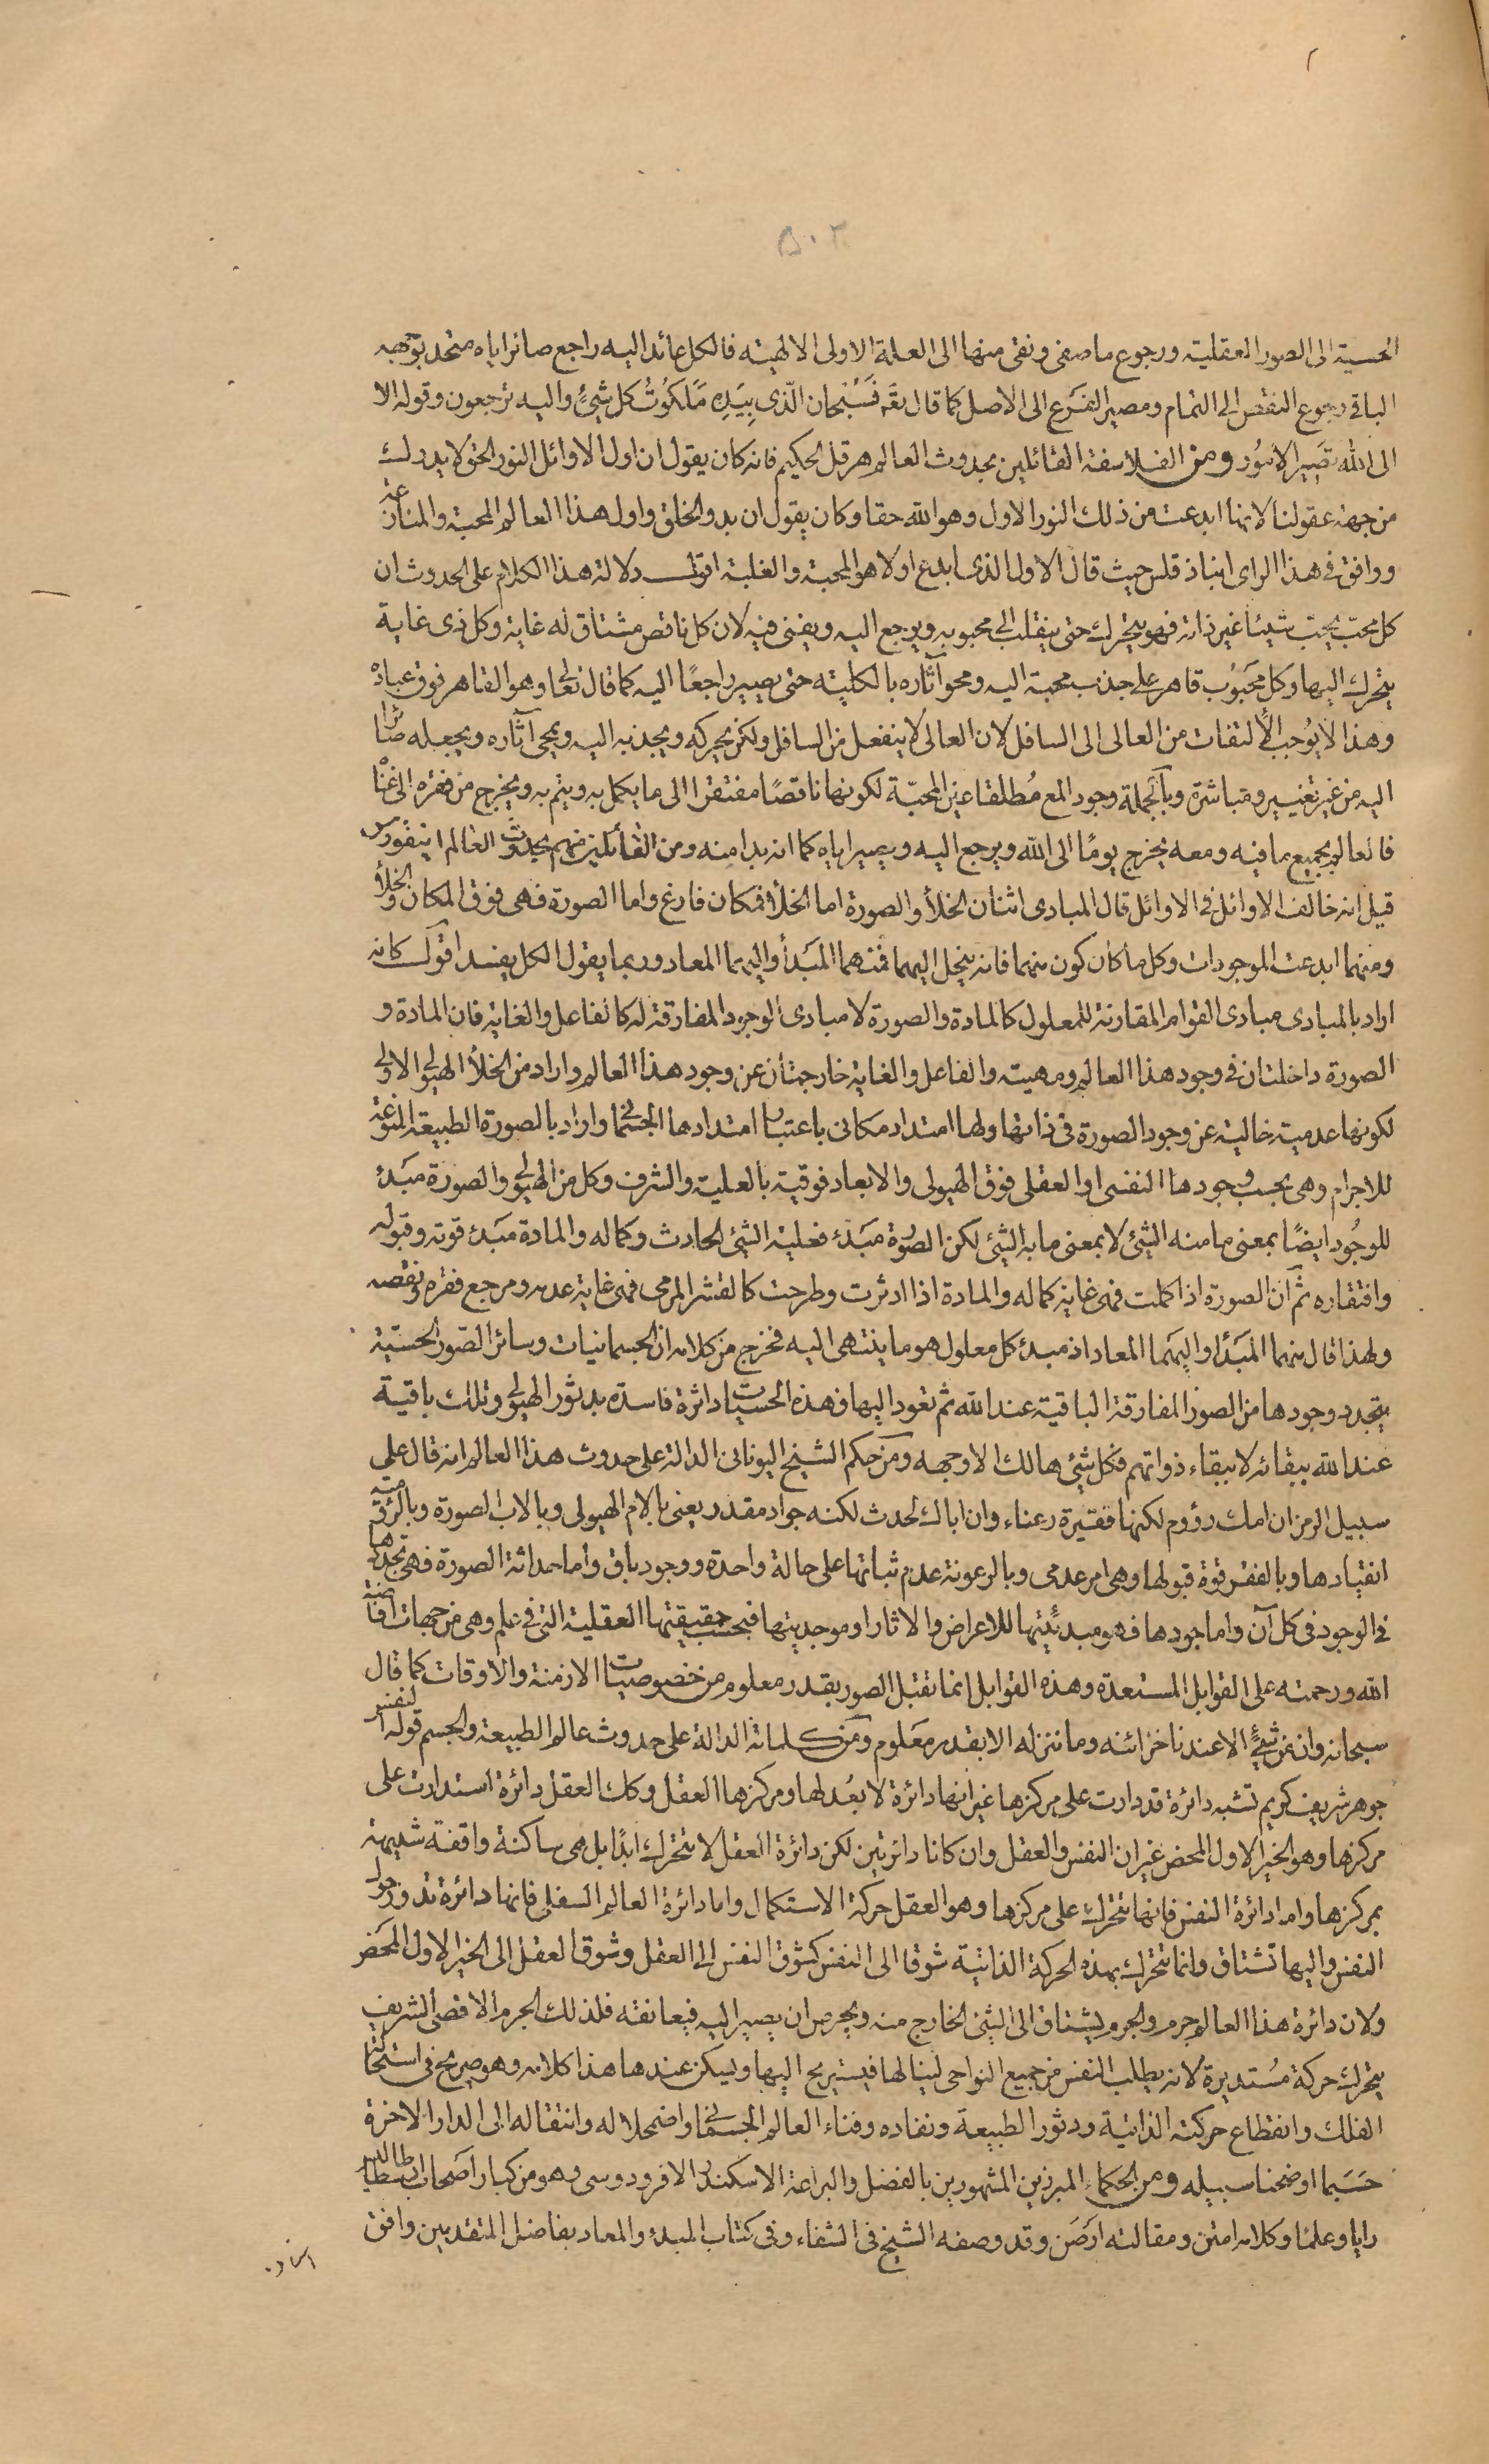 ۵۰۲
الحسية الى الصور العقلية ورجوع ما صفى ونقى منها الى العلة الاولى الالهيته فالكل عائد اليه راجع صائر اياه متحد بوجهه
الباقى رجوع النقص الى التمام ومصير الفرع الى الاصل كما قال تعه فَسُبْحان الّذى بِيَدِهِ مَلَكُوتُ كل شئٍ واليه ترجعون وقوله الا
الى الله تصير الامور ومن الفلاسفة القائلين بحدوث العالم هرقل الحكيم فانه كان يقول ان اول الاوائل النور الحق لا يدرك
من جهة عقولنا لانها ابدعت من ذلك النور الاول وهو الله حقا وكان يقول ان بدو الخلق واول هذا العالم المحبة والمنازعة
ووافق فى هذا الراى انباذقلس حيث قال الاول الذى ابدع اولا هو المحبة والغلبة اقول دلالة هذا الكلام على الحدوث ان
كل محبّ يحبّ شيئا غير ذاته فهو يتحرك حتى ينقلب الى محبوبه ويرجع اليه ويفنى فيه لان كل ناقص مشتاق له غاية وكل ذى غاية
يتحرك اليها وكل محَبُوب قاهر على جذب محبة اليه ومحو آثاره بالكلية حتى يصير راجعًا اليه كما قال تعالى وهو القاهر فوق عباده
وهذا لا يوُجب الألتفات من العالى الى السافل لان العالى لا ينفعل من السافل ولكن يحركه ويجذبه اليه ويمحى آثاره ويجعله صائرا
اليه من غير تغيير ومباشرة وبالجملة وجود المع مُطلقا عين المحبّة لكونها ناقصًا مفتقرا الى ما يكمل به ويتم به ويخرج من فقره الى غناء
فالعالم بجميع ما فيه ومعه يخرج يومًا الى الله ويرجع اليه ويصير اياه كما انه بدا منه ومن القائلين منهم بحدوث العالم ابيقورس
قيل انه خالف الاوائل فى الاوائل قال المبادى اثنان الخلأ والصورة اما الخلأ فمكان فارغ واما الصورة فهى فوق المكان والخلأ
ومنهما ابدعت الموجودات وكل ما كان كون منهما فانه ينحل اليهما فمنهما المَبَدأ واليهما المعاد وربما يقول الكل يفسد اقول كانه
اراد بالمبادى مبادى القوام المقارنة للمعلول كالمادة والصورة لا مبادى الوجود المفارقة له كالفاعل والغاية فان المادة و
الصورة داخلتان فى وجود هذا العالم ومهيته والفاعل والغاية خارجتان عن وجود هذا العالم واراد من الخلأ الهيولى الاولى
لكونها عدمية خالية عن وجود الصورة فى ذاتها ولها امتداد مكانى باعتبار امتدادها الجسمانى واراد بالصورة الطبيعة المنوعة
للاجرام وهى بحسب وجودها النفسى او العقلى فوق الهيولى والابعاد فوقية بالعلية والشرف وكل من الهيولى والصورة مَبَدئ
للوجُود ايضًا بمعنى ما منه الشئ لا بمعنى ما به الشئ لكن الصورة مَبَدء فعلية الشئ الحادث وكماله والمادة مَبَدء قوته وقبوله
وافتقاره ثم آن الصورة اذا كملت فهى غاية كماله والمادة اذا ادثرت وطرحت كالقشر المرمى فهى غاية عدمه ومرجع فقره ونقصه
ولهذا قال منهما المَبَدأ واليهما المعاد اذ مبدئ كل معلول هو ما ينتهى اليه فخرج من كلامه ان الجسمانيات وسائر الصّور الحسّية
يتجدد وجودها من الصور المفارقة الباقية عند الله ثم تعود اليها فهذه الحسيات داثرة فاسدة بدثور الهيولى وتلك باقية
عند الله ببقائه لا ببقاء ذواتهم فكل شئ هالك الا وجهه ومن حكم الشيخ اليونانى الدالة على حدوث هذا العالم انه قال على
سبيل الرمز ان امك رؤوم لكنها فقيرة رعناء وان اباك لحدث لكنه جواد مقدر يعنى بالام الهيولى وبالاب الصورة وبالرؤمية
انقيادها وبالفقر قوة قبولها وهى امر عدمى وبالرعونة عدم ثباتها على حالة واحدة ووجود باق واما حداثة الصورة فهى تجددها
فى الوجود فى كل آن واما جودها فهو مبدئيتها للاعراض والاثار او موجديتها فبحسب حقيقتها العقلية التى فى علم وهى من جهات افاضة
الله ورحمته على القوابل المستعدة وهذه القوابل انما تقبل الصور بقدر معلوم من خصوصيات الازمنة والاوقات كما قال
سبحانه وان من شئٍ الا عندنا خزائنه وما ننزله الا بقدر معَلوم ومن كلماته الدالة على حدوث عالم الطبيعة والجسم قوله النفس
جوهر شريف كريم تشبه دائرة قد دارت على مركزها غير انها دائرة لا بعُد لها ومركزها العقل وكك العقل دائرة استدارت على
مركزها وهو الخير الاول المحض غير ان النفس والعقل وان كانا دائرتين لكن دائرة العقل لا تتحرك ابدًا بل هى ساكنة واقفة شبيهة
بمركزها واما دائرة النفس فانها تتحرك على مركزها وهو العقل حركة الاستكمال واما دائرة العالم السفلى فانها دائرة تدور حول
النفس واليها تشتاق وانما تتحرك بهذه الحركة الذاتية شوقا الى النفس كشوق النفس الى العقل وشوق العقل الى الخير الاول المحَض
ولان دائرة هذا العالم جرم والجرم يشتاق الى الشئ الخارج منه ويحرص ان يصير اليه فيعانقه فلذلك الجرم الاقصى الشريف
يتحرك حركة مُستديرة لانه يطلب النفس من جميع النواحى لينالها فيستريح اليها ويسكن عندها هذا كلامه وهو صريح فى استحالة
الفلك وانقطاع حركته الذاتية ودثور الطبيعة ونفاده وفناء العالم الجسمانى واضمحلاله وانتقاله الى الدار الاخرة
حَسَبما اوضحنا سبيله ومن الحكماء المبرزين المشهورين بالفضل والبراعة الاسكندر الافرودوسى وهو من كبار اصَحاب ارسطاطاليس
رايا وعلما وكلامه امتن ومقالته ارصَن وقد وصفه الشيخ فى الشفاء وفى كتاب المبدء والمعاد بفاضل المتقدمين وافق